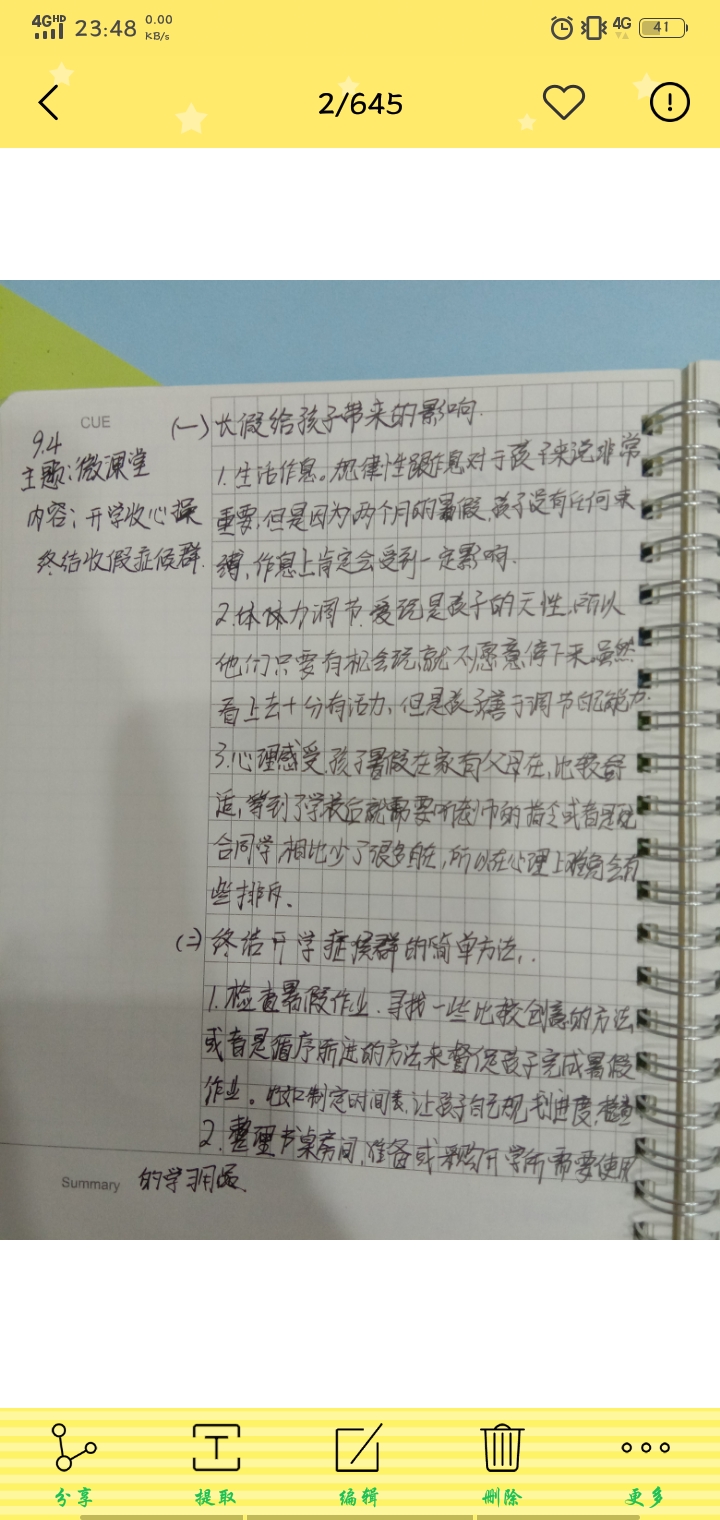 4GHD 23:48 0.00 KB/s 4G 41
2/645
CUE
9.4
主题:微课堂
内容:开学收心操
终结收假症候群.
(一)长假给孩子带来的影响.
1.生活作息。规律性跟作息对于孩子来说非常
重要,但是因为两个月的暑假,孩子没有任何束
缚,作息上肯定会受到一定影响.
2.体体力调节.爱玩是孩子的天性.所以
他们只要有机会玩,就不愿意停下来.虽然
看上去十分有活力,但是孩子善于调节的能力.
3.心理感受.孩子暑假在家有父母在,比较舒
适,等到了学校后就需要听老师的指令或者是配
合同学,相比少了很多自在,所以在心理上难免会有
些排斥.
(二)终结开学症候群的简单方法..
1.检查暑假作业.寻找一些比较创意的方法
或者是循序渐进的方法来督促孩子完成暑假
作业。比如制定时间表,让孩子自己规划进度,检查
2.整理书桌房间,准备或采购开学所需要使用
Summary 的学习用品.
分享 提取 编辑 删除 更多